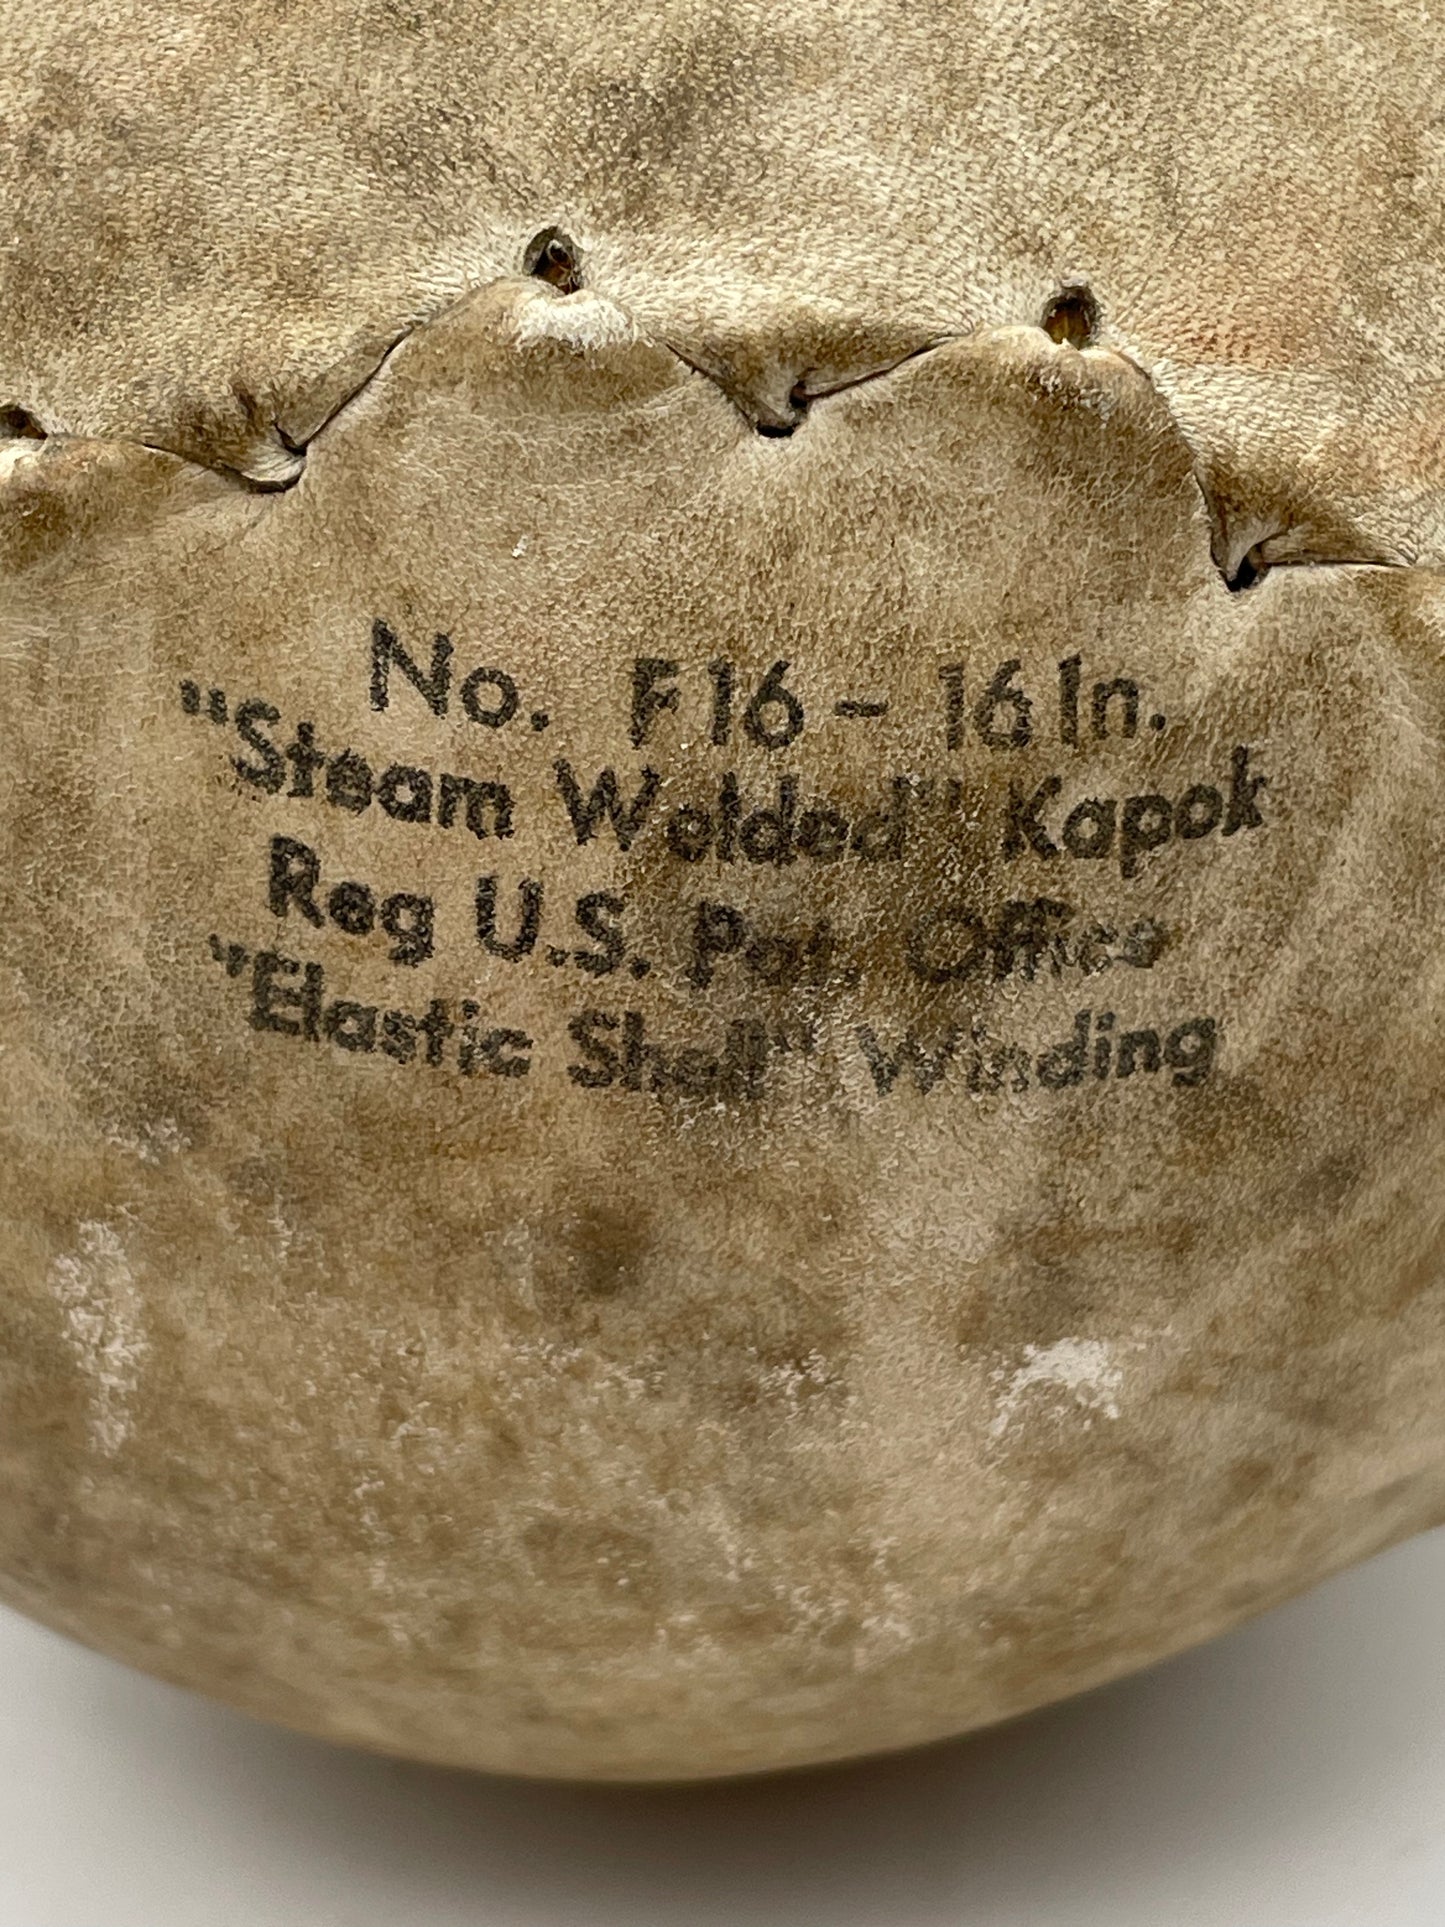 No. F16 - 16 In.
"Steam Welded" Kapok
Reg U.S. Pat. Office
"Elastic Shell" Winding